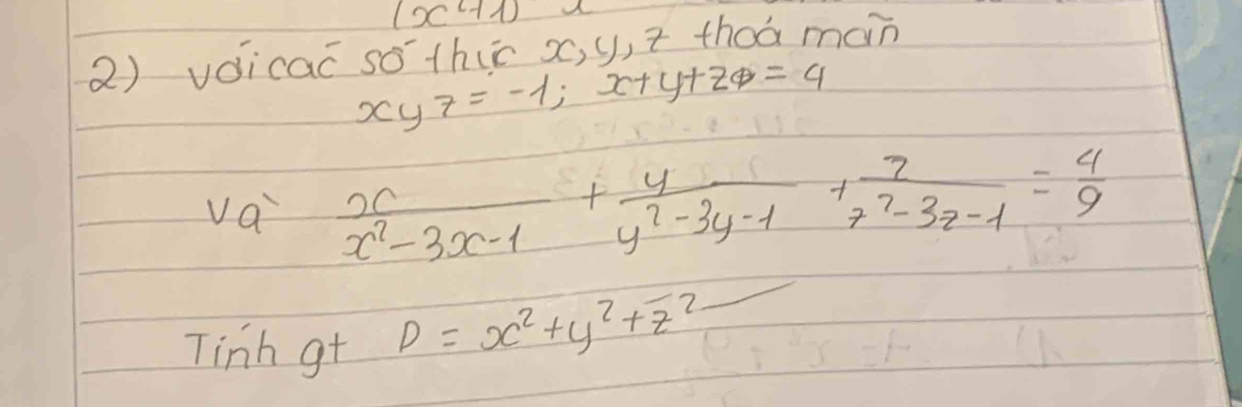 (x²+1) x
2) với các số thực x, y, z thoả mãn
xyz = -1; x+y+z = 4
và x/(x²-3x-1) + y/(y²-3y-1) + z/(z²-3z-1) = 4/9
Tính gt P = x²+y²+z²